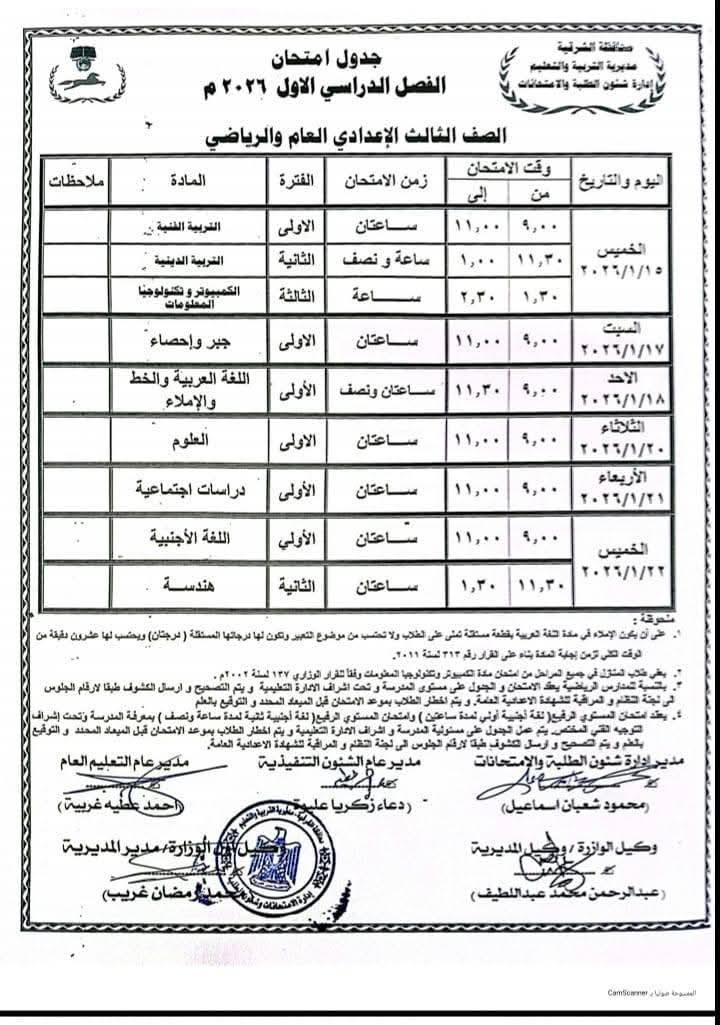 محافظة الشرقية
مديرية التربية والتعليم
إدارة شئون الطلبة والامتحانات
جدول امتحان
الفصل الدراسي الاول ٢٠٢٦ م
الصف الثالث الإعدادي العام والرياضي
اليوم والتاريخ | وقت الامتحان من | إلى | زمن الامتحان | الفترة | المادة | ملاحظات
الخميس ٢٠٢٦/١/١٥ | ٩,٠٠ | ١١,٠٠ | ساعتان | الاولى | التربية الفنية
١١,٣٠ | ١,٠٠ | ساعة و نصف | الثانية | التربية الدينية
١,٣٠ | ٢,٣٠ | ساعة | الثالثة | الكمبيوتر و تكنولوجيا المعلومات
السبت ٢٠٢٦/١/١٧ | ٩,٠٠ | ١١,٠٠ | ساعتان | الاولى | جبر وإحصاء
الاحد ٢٠٢٦/١/١٨ | ٩,٠٠ | ١١,٣٠ | ساعتان ونصف | الأولى | اللغة العربية والخط والإملاء
الثلاثاء ٢٠٢٦/١/٢٠ | ٩,٠٠ | ١١,٠٠ | ساعتان | الاولى | العلوم
الأربعاء ٢٠٢٦/١/٢١ | ٩,٠٠ | ١١,٠٠ | ساعتان | الأولى | دراسات اجتماعية
الخميس ٢٠٢٦/١/٢٢ | ٩,٠٠ | ١١,٠٠ | ساعتان | الأولي | اللغة الأجنبية
١١,٣٠ | ١,٣٠ | ساعتان | الثانية | هندسة
ملحوظة :
١. على أن يكون الإملاء في مادة اللغة العربية بقطعة مستقلة تملى على الطلاب ولا تحتسب من موضوع التعبير وتكون لها درجاتها المستقلة ( درجتان) ويحتسب لها عشرون دقيقة من
الوقت الكلي لزمن إجابة المادة بناء على القرار رقم ٣١٣ لسنة ٢٠١١.
٢. يعفي طلاب المنازل في جميع المراحل من امتحان مادة الكمبيوتر وتكنولوجيا المعلومات وفقاً للقرار الوزاري ١٣٧ لسنة ٢٠٠٢م.
٣. بالنسبة للمدارس الرياضية يعقد الامتحان و الجدول على مستوى المدرسة و تحت اشراف الادارة التعليمية و يتم التصحيح و ارسال الكشوف طبقا لارقام الجلوس
الى لجنة النظام و المراقبة للشهادة الإعدادية العامة. و يتم اخطار الطلاب بموعد الامتحان قبل الميعاد المحدد و التوقيع بالعلم
٤. يعقد امتحان المستوي الرفيع( لغة أجنبية أولي لمدة ساعتين ) وامتحان المستوي الرفيع( لغة أجنبية ثانية لمدة ساعة ونصف ) بمعرفة المدرسة وتحت إشراف
التوجيه الفني المختص. يتم عمل الجدول على مسئولية المدرسة و اشراف الادارة التعليمية و يتم اخطار الطلاب بموعد الامتحان قبل الميعاد المحدد و التوقيع
بالعلم و يتم التصحيح و ارسال الكشوف طبقا لارقام الجلوس الى لجنة النظام و المراقبة للشهادة الاعدادية العامة.
مدير إدارة شئون الطلبة والامتحانات
(محمود شعبان اسماعيل)
مدير عام الشئون التنفيذية
(دعاء زكريا عليوة)
مدير عام التعليم العام
(أحمد عطيه غريبة)
وكيل الوازرة / وكيل المديرية
(عبدالرحمن محمد عبداللطيف)
وكيل أول الوزارة / مدير المديرية
محمد رمضان غريب)
الممسوحة ضوئيا بـ CamScanner